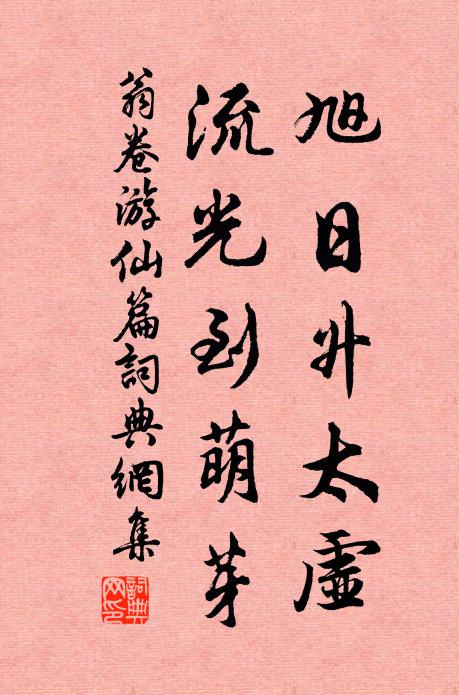 旭日升太虛
流光到萌芽
翁卷游仙篇詞典網集
詞典网印